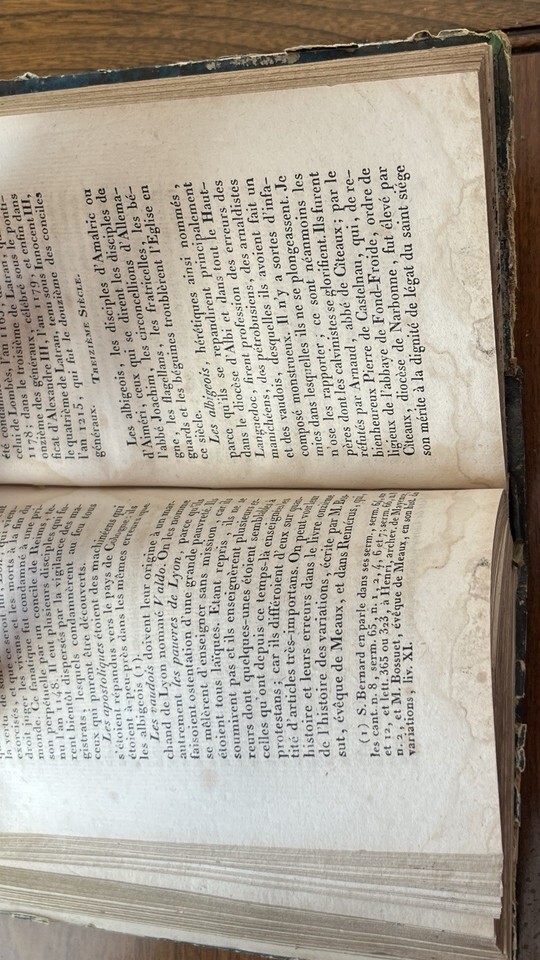 exorcisés, et que les morts à la fin du
droit juger les vivans et les morts à la fin du
monde. Ce fanatique fut condamné à une pri-
son perpétuelle par un concile de Reims, te-
nu l'an 1148. Il eut plusieurs disciples qui fu-
rent bientôt dispersés par la vigilance des ma-
gistrats, lesquels condamnèrent au feu tous
ceux qui purent être découverts.
Les apostoliques étoient des manichéens qui
s'étoient répandus vers le pays de Cologne, ils
étoient à-peu-près dans les mêmes erreurs que
les albigeois (1).
Les vaudois doivent leur origine à un mar-
chand de Lyon nommé Valdo. On les nomme
autrement les pauvres de Lyon, parce qu'ils
faisoient ostentation d'une grande pauvreté. Ils
se mêlèrent d'enseigner sans mission, car ils
étoient tous laïques. Etant repris, ils ne se
soumirent pas et ils enseignèrent plusieurs er-
reurs dont quelques-unes étoient semblables à
celles qu'ont depuis ce temps-là enseignées les
protestans; car ils différoient d'eux sur quan-
tité d'articles très-importans. On peut voir leur
histoire et leurs erreurs dans le livre onzième
de l'histoire des variations, écrite par M. Bos-
sut, évêque de Meaux, et dans Reinérus, qui
(1) S. Bernard en parle dans ses serm., serm. sur
les cant. n. 8, serm. 65, n. 1, 2, 4, 6 et 7; serm. 66, n.
et 12, et lett. 365 ou 323, à Henri, archev. de Mayence
n. 2, et M. Bossuet, évêque de Meaux, en son hist. des
variations, liv. XI.
été condamnés
celui de Lombès, l'an 1165, de
1178, et dans le troisième de Latran, qui
onzième des généraux, célébré sous le ponti-
ficat d'Alexandre III, l'an 1179, et enfin dans
le quatrième de Latran, tenu sous Innocent III,
l'an 1215, qui fut le douzième des conciles
généraux. TREIZIÈME SIÈCLE.
Les albigeois, les disciples d'Amalric ou
d'Aiméri, ceux qui se dirent les disciples de
l'abbé Joachim, les circoncellions d'Allema-
gne, les flagellans, les fratricelles, les bé-
guards et les béguines troublèrent l'Eglise en
ce siècle.
Les albigeois, hérétiques ainsi nommés,
parce qu'ils se répandirent principalement
dans le diocèse d'Albi et dans tout le Haut-
Languedoc, firent profession des erreurs des
manichéens, des pétrobusiens, des arnaldistes
et des vaudois, desquelles ils avoient fait un
composé monstrueux. Il n'y a sortes d'infa-
mies dans lesquelles ils ne se plongeassent. Je
n'ose les rapporter; ce sont néanmoins les
pères dont les calvinistes se glorifient. Ils furent
réfutés par Arnaud, abbé de Citeaux; par le
bienheureux Pierre de Castelnau, qui, de re-
ligieux de l'abbaye de Fond-Froide, ordre de
Citeaux, diocèse de Narbonne, fut élevé par
son mérite à la dignité de légat du saint siège